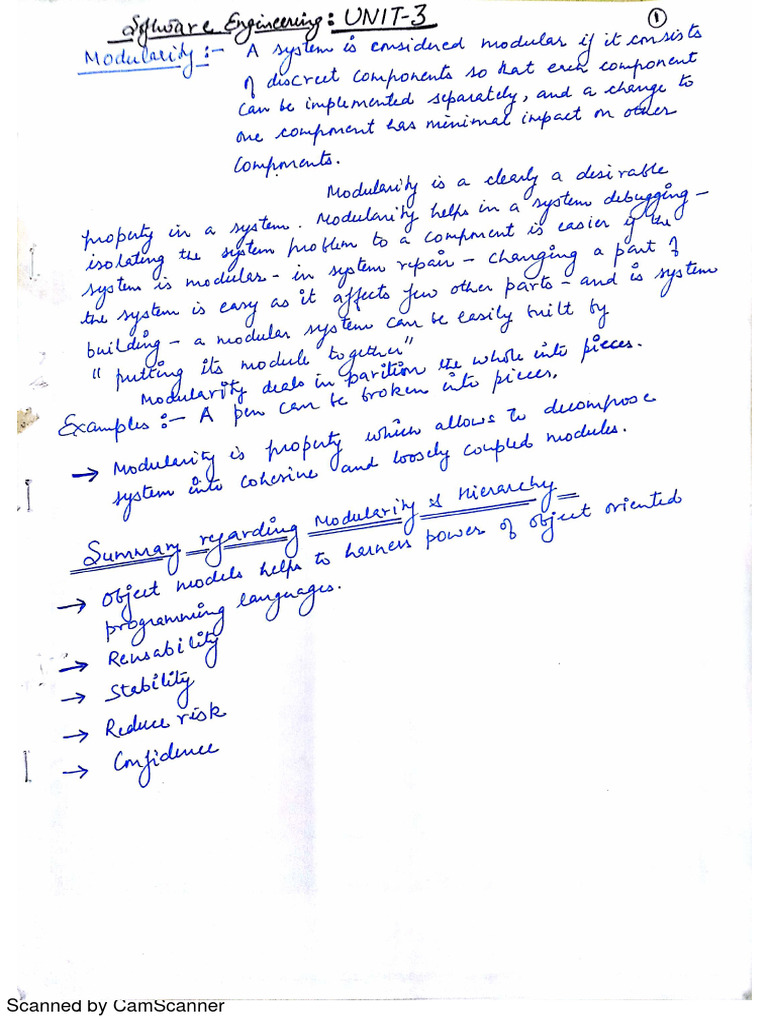 Software Engineering: UNIT-3
1
Modularity :- A system is considered modular if it consists
of discreet components so that each component
can be implemented separately, and a change to
one component has minimal impact on other
components.
Modularity is a clearly a desirable
property in a system. Modularity helps in a system debugging -
isolating the system problem to a component is easier if the
system is modular - in system repair - changing a part of
the system is easy as it affects few other parts - and is system
building - a modular system can be easily built by
" putting its module together"
Modularity deals in parition the whole into pieces.
Examples :- A pen can be broken into pieces.
→ Modularity is property which allows to decompose
system into cohesive and loosely coupled modules.
Summary regarding Modularity & Hierarchy
→ Object models helps to harness power of object oriented
programming languages.
→ Reusability
→ Stability
→ Reduce risk
→ Confidence
Scanned by CamScanner